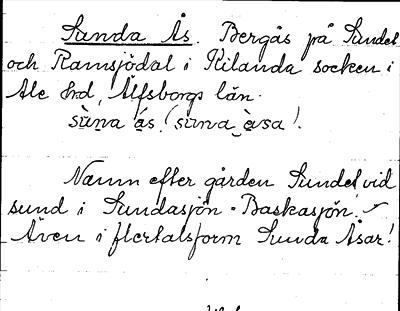 Sunda Ås. Bergås på Sundet
och Ramsjödal i Kilanda socken i
Ale hrd, Älfsborgs län.
sùna ás (sùna àsa!
Namn efter gården Sundet vid
sund i Sundasjön - Baskasjön!
Även i flertalsform Sunda Åsar!